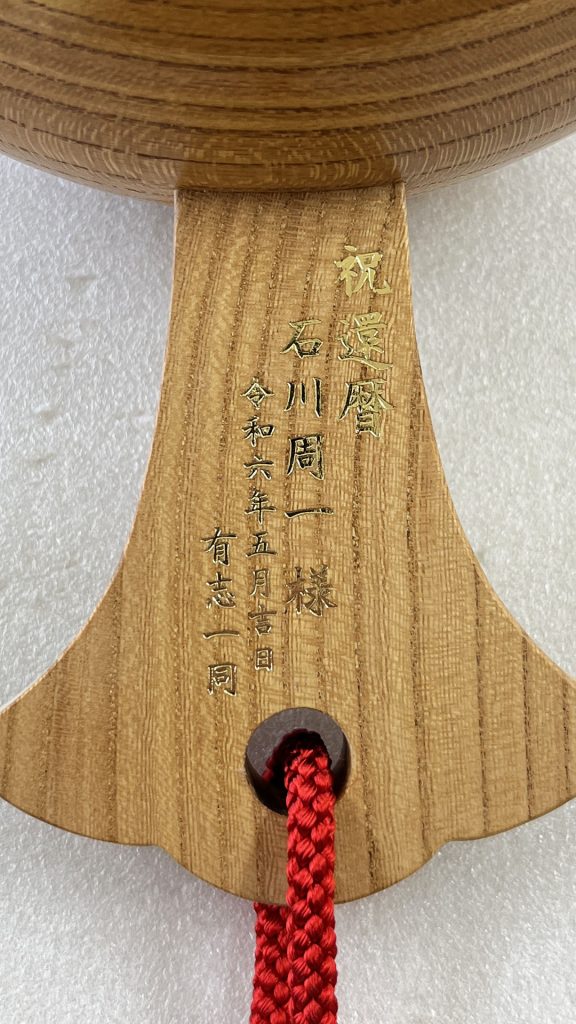 祝還暦
石川周一様
令和六年五月吉日
有志一同